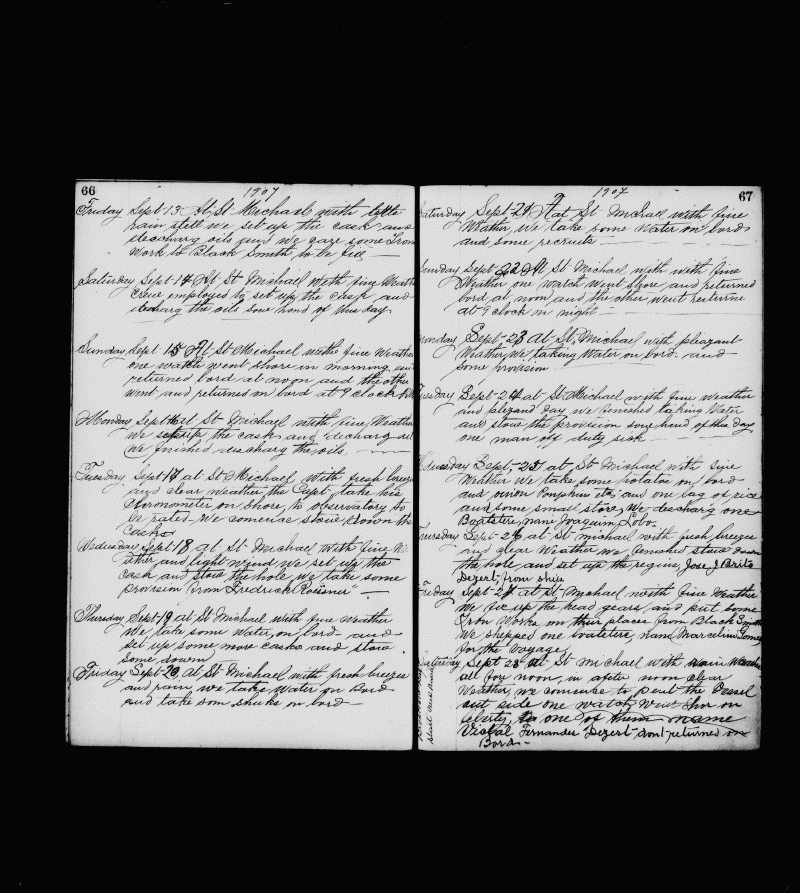 66
1907
Friday Sept 13 At St Michael with little
rain still we set up the cask and
discharg oils and we gave some Iron
Work to Black Smith to be fix
Saturday Sept 14 At St Michael with fine Weath
Crew employed to set up the casp and
discharg the oils some hand of this day
Sunday Sept 15 At St Michael with fine Weather
one watch went shore in morning and
returned bord at noon and the other
went and returned on bord at 9 clock
Monday Sept 16 at St Michael with fine Weather
We set up the cask and decharg oil
We finished descharg the oils.
Tuesday Sept 17 at St Michael with fresh breeze
and clear weather the Capt take his
Cloronometer on shore, to observatory to
be rated We comence stow down the
Casks
Wednesday Sept 18 at St Michael with fine We
ether and light wind, we set up the
cask and stow the hole we take some
provision from Fredrick
Thursday Sept 19 at St Michael with fine weather
We take some water on bord and
set up some more casks and stow
some down
Friday Sept 20 At St Michael with fresh breezes
and rain we take Water on Bord
and take som shuks on bord
67
1907
Saturday Sept 21 At at St Michael with fine
Weather, We take some Water on bord
and some recruits
Sunday Sept 22 At St Michael with with fine
Weather one watch went shore, and returned
bord at noon and the other went returne
at 9 clock in night
Monday Sept 23 at St Michael with pleazant
Weather, We taking Water on bord and
some provision
Tuesday Sept 24 at St Michael with fine weather
and plezand day we finished taking Water
and stow the provision some hand of this day
one man off duty sick
Wednesday Sept. 25 at St Michael with fine
Weather We take some potatos on bord
and onion Ponpkins etc, and one bag of rice
and some small store, We descharg one
Boatstire, name Joaquim Lobo.
Thursday Sept 26 at St michael with fresh breezes
and clear Weather We fenished stow down
the hole and set up the regine, Jose J Brito
Dezert from shie
Friday Sept 27 at St Michael with fine Weather
We fix up the head gears, and put some
Iron Works on their places from Black Smith
We shepped one boatstere, name Marcelino Gomes
for the Voyage
Saturday Sept 28 at St Michael with rain
all fore noon, in after noon clear
Weather, we comence to pent the Vessel
out side one watch Went shor on
leberty, to one of them name
Victal Fernander "Dezert" dont returned on
Bord.